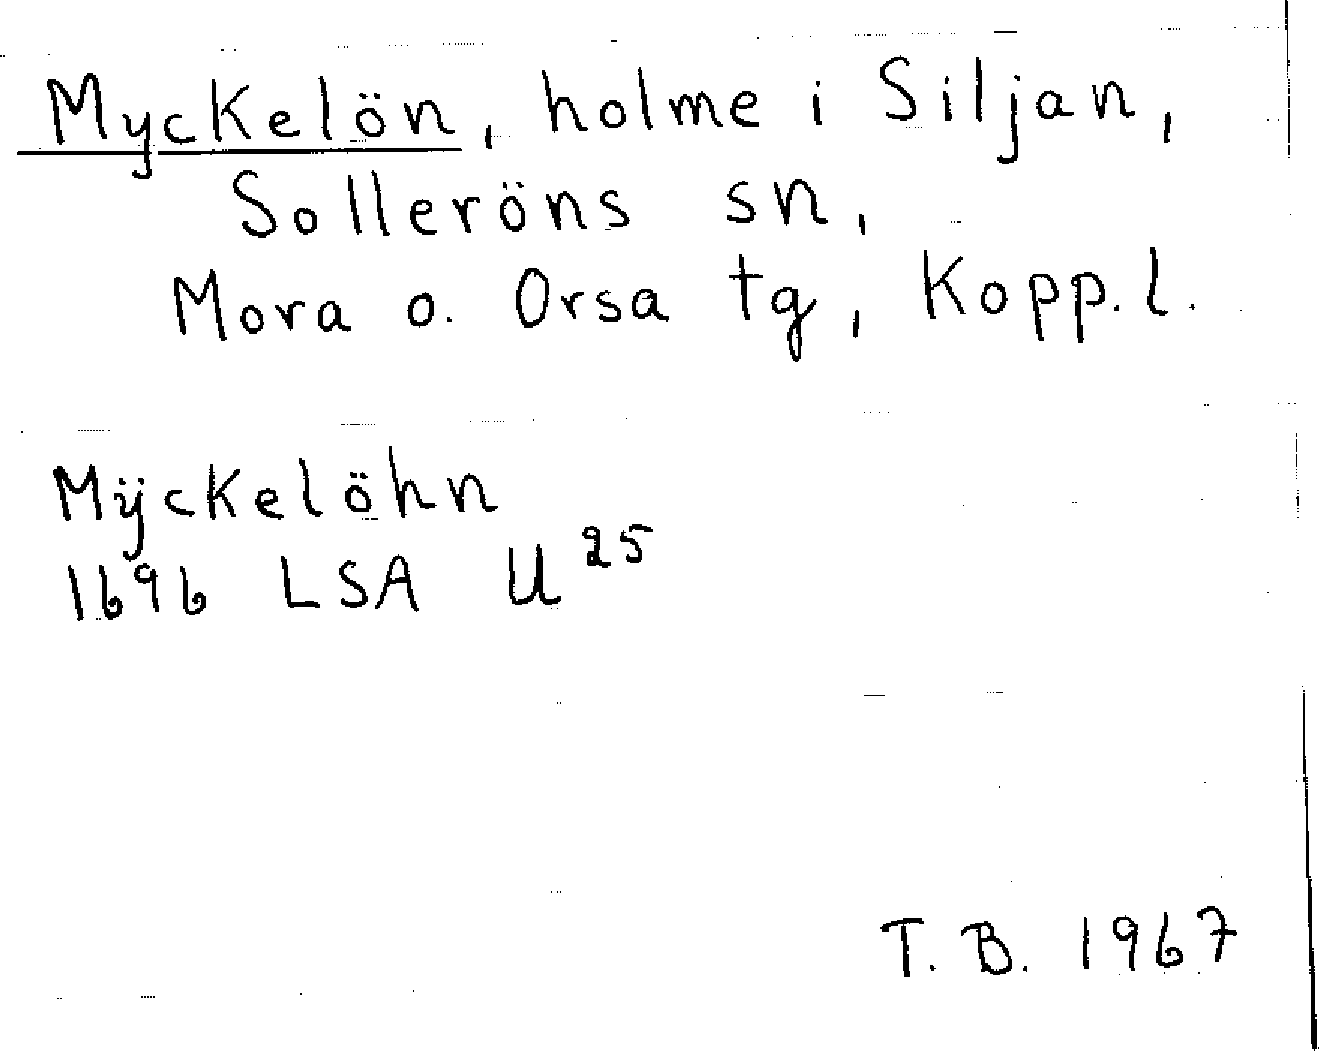 Myckelön, holme i Siljan,
Solleröns sn,
Mora o. Orsa tg, Kopp.l.
Mÿckelöhn
1696 LSA U 25
T. B. 1967